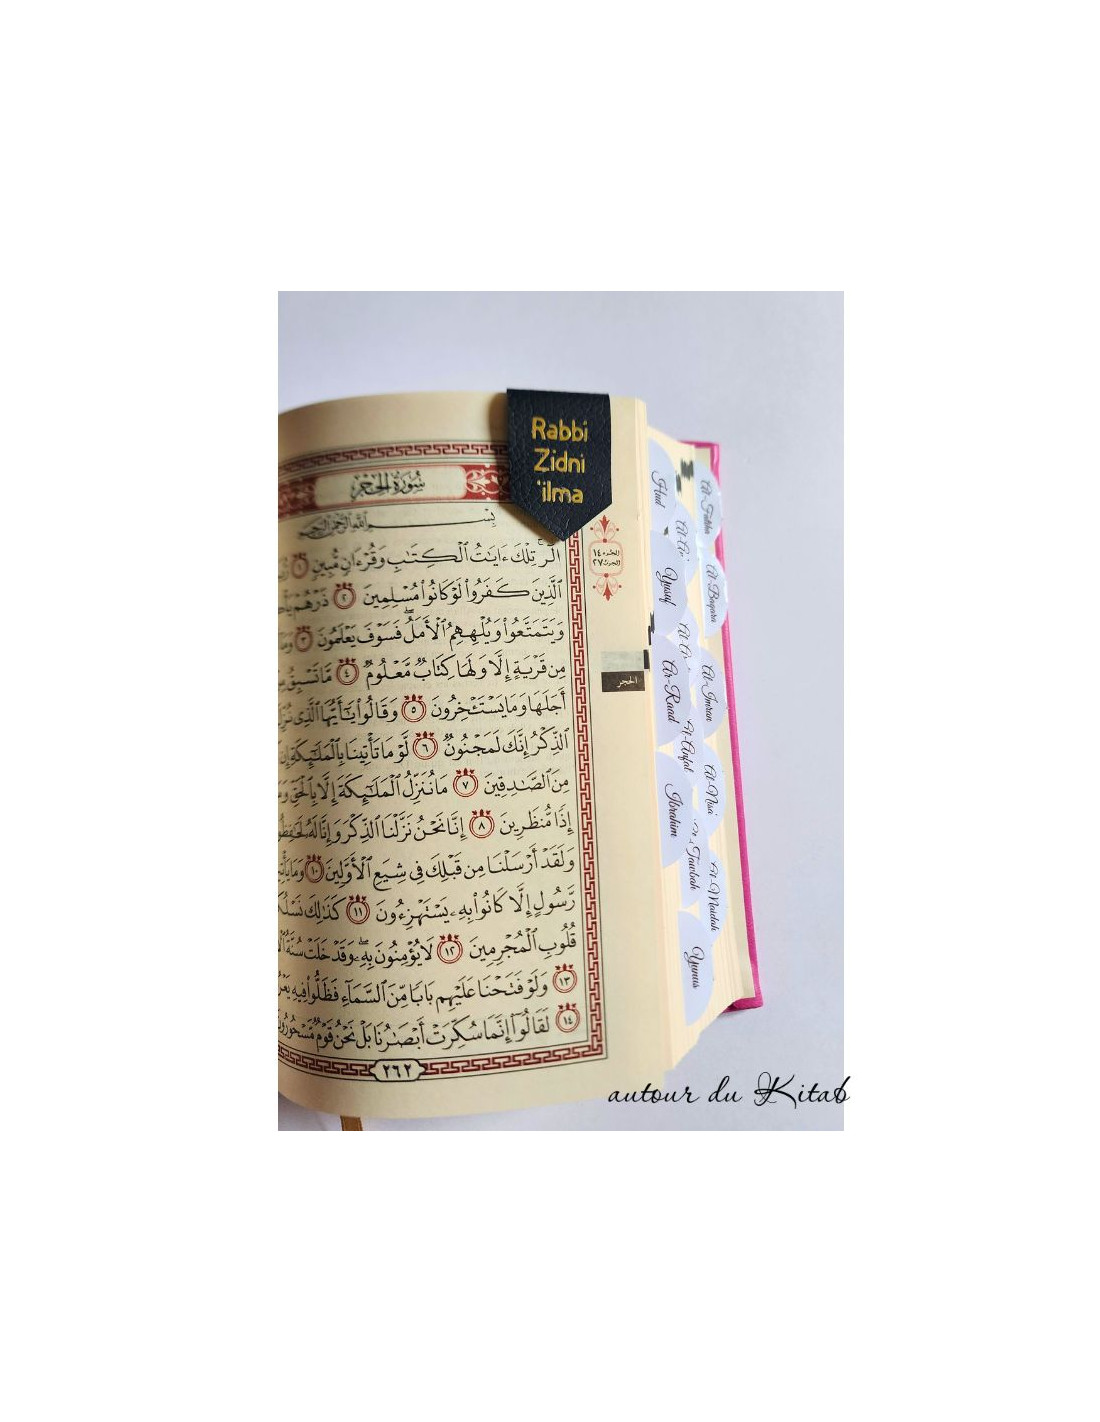 Rabbi
Zidni
'ilma
سُورَةُ الحِجْرِ
بِسْمِ اللَّهِ الرَّحْمَٰنِ الرَّحِيمِ
الٓرۚ تِلْكَ ءَايَٰتُ ٱلْكِتَٰبِ وَقُرْءَانٍ مُّبِينٍ ١
ٱلَّذِينَ كَفَرُواْ لَوْ كَانُواْ مُسْلِمِينَ ٢ ذَرْهُمْ
وَيَتَمَتَّعُواْ وَيُلْهِهِمُ ٱلْأَمَلُۖ فَسَوْفَ يَعْلَمُونَ ٣
مِن قَرْيَةٍ إِلَّا وَلَهَا كِتَابٌ مَّعْلُومٌ ٤ مَّا تَسْبِقُ
أَجَلَهَا وَمَا يَسْتَـْٔخِرُونَ ٥ وَقَالُواْ يَٰٓأَيُّهَا ٱلَّذِى
ٱلذِّكْرُ إِنَّكَ لَمَجْنُونٌ ٦ لَّوْ مَا تَأْتِينَا بِٱلْمَلَٰٓئِكَةِ إِن
مِنَ ٱلصَّٰدِقِينَ ٧ مَا نُنَزِّلُ ٱلْمَلَٰٓئِكَةَ إِلَّا بِٱلْحَقِّ
إِذًا مُّنظَرِينَ ٨ إِنَّا نَحْنُ نَزَّلْنَا ٱلذِّكْرَ وَإِنَّا لَهُۥ
وَلَقَدْ أَرْسَلْنَا مِن قَبْلِكَ فِى شِيَعِ ٱلْأَوَّلِينَ ١٠
رَّسُولٍ إِلَّا كَانُواْ بِهِۦ يَسْتَهْزِءُونَ ١١ كَذَٰلِكَ
قُلُوبِ ٱلْمُجْرِمِينَ ١٢ لَا يُؤْمِنُونَ بِهِۦۖ وَقَدْ خَلَتْ سُنَّةُ
١٣ وَلَوْ فَتَحْنَا عَلَيْهِم بَابًا مِّنَ ٱلسَّمَآءِ فَظَلُّواْ فِيهِ
١٤ لَقَالُوٓاْ إِنَّمَا سُكِّرَتْ أَبْصَٰرُنَا بَلْ نَحْنُ قَوْمٌ مَّسْحُورُونَ
٢٦٢
الجزء ١٤
الحزب ٢٧
الحجر
Hud
Yusuf
Ar-Raad
Ibrahim
Al-Anfal
Tawbah
Yunus
Al-Fatiha
Al-Baqara
Al-Imran
Al-Nisa
Al-Maidah
autour du Kitab